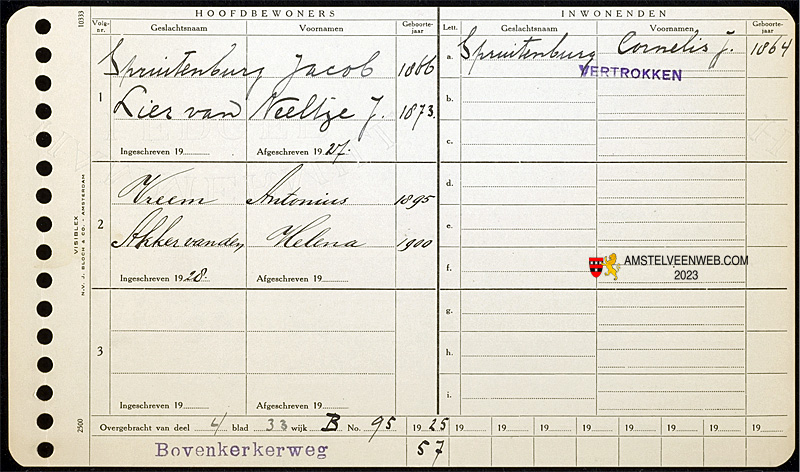 HOOFDBEWONERS
Volg-nr. Geslachtsnaam Voornamen Geboorte-jaar
1 Spruitenburg Jacob 1866
Lier van Neeltje J. 1873.
Ingeschreven 19 Afgeschreven 19 27.
2 Vreem Antonius 1895
Akker van den Helena 1900
Ingeschreven 19 28. Afgeschreven 19
3
Ingeschreven 19 Afgeschreven 19
INWONENDEN
Lett. Geslachtsnaam Voornamen Geboorte-jaar
a. Spruitenburg Cornelis J. 1864
VERTROKKEN
b.
c.
d.
e.
f.
g.
h.
i.
AMSTELVEENWEB.COM
2023
Overgebracht van deel 4 blad 33 wijk B No. 95 1925 19 19 19 19 19 19 19 19
Bovenkerkerweg 57
10333
VISIBLEX
N.V. J. BLOCH & CO. - AMSTERDAM
2500